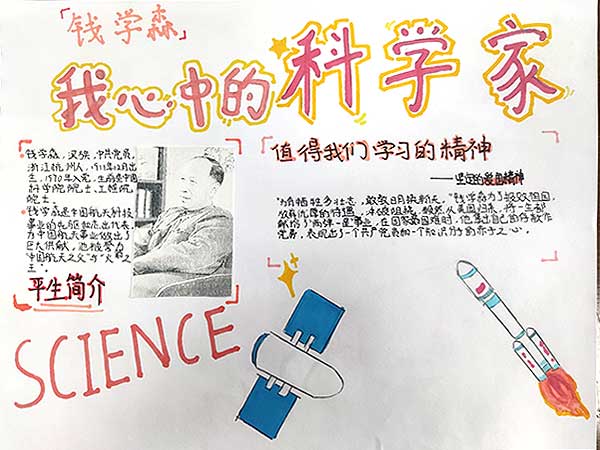 「钱学森」
我心中的科学家
·钱学森，汉族，中共党员，
浙江杭州人，1911年12月出
生，1970年入党，生前是中国
科学院院士，工程院
院士。
·钱学森是中国航天科技
事业的先驱和杰出代表，
为中国航天事业做出了
巨大供献，他被誉为
"中国航天之父"与"火箭之
王"。
平生简介
值得我们学习的精神
——坚定的爱国精神
"为有牺牲多壮志，敢教日月换新天。"钱学森为了报效祖国，
放弃优厚的待遇，冲破阻挠，毅然从美国归来，将一生都
献给了"两弹一星"事业，
表现出了一个共产党员和一个知识分子的赤子之心。
SCIENCE